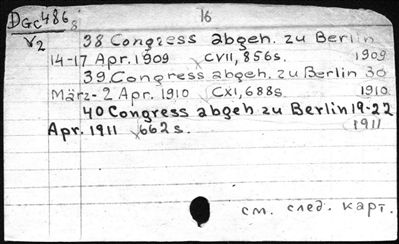 DGc486 8 16
V2 38 Congress abgeh. zu Berlin
14-17 Apr. 1909 CVII, 856s. 1909
39 Congress abgeh. zu Berlin 30
März-2 Apr. 1910 CXI, 688s. 1910
40 Congress abgeh zu Berlin 19-22
Apr. 1911 662s. 1911
см. след. карт.